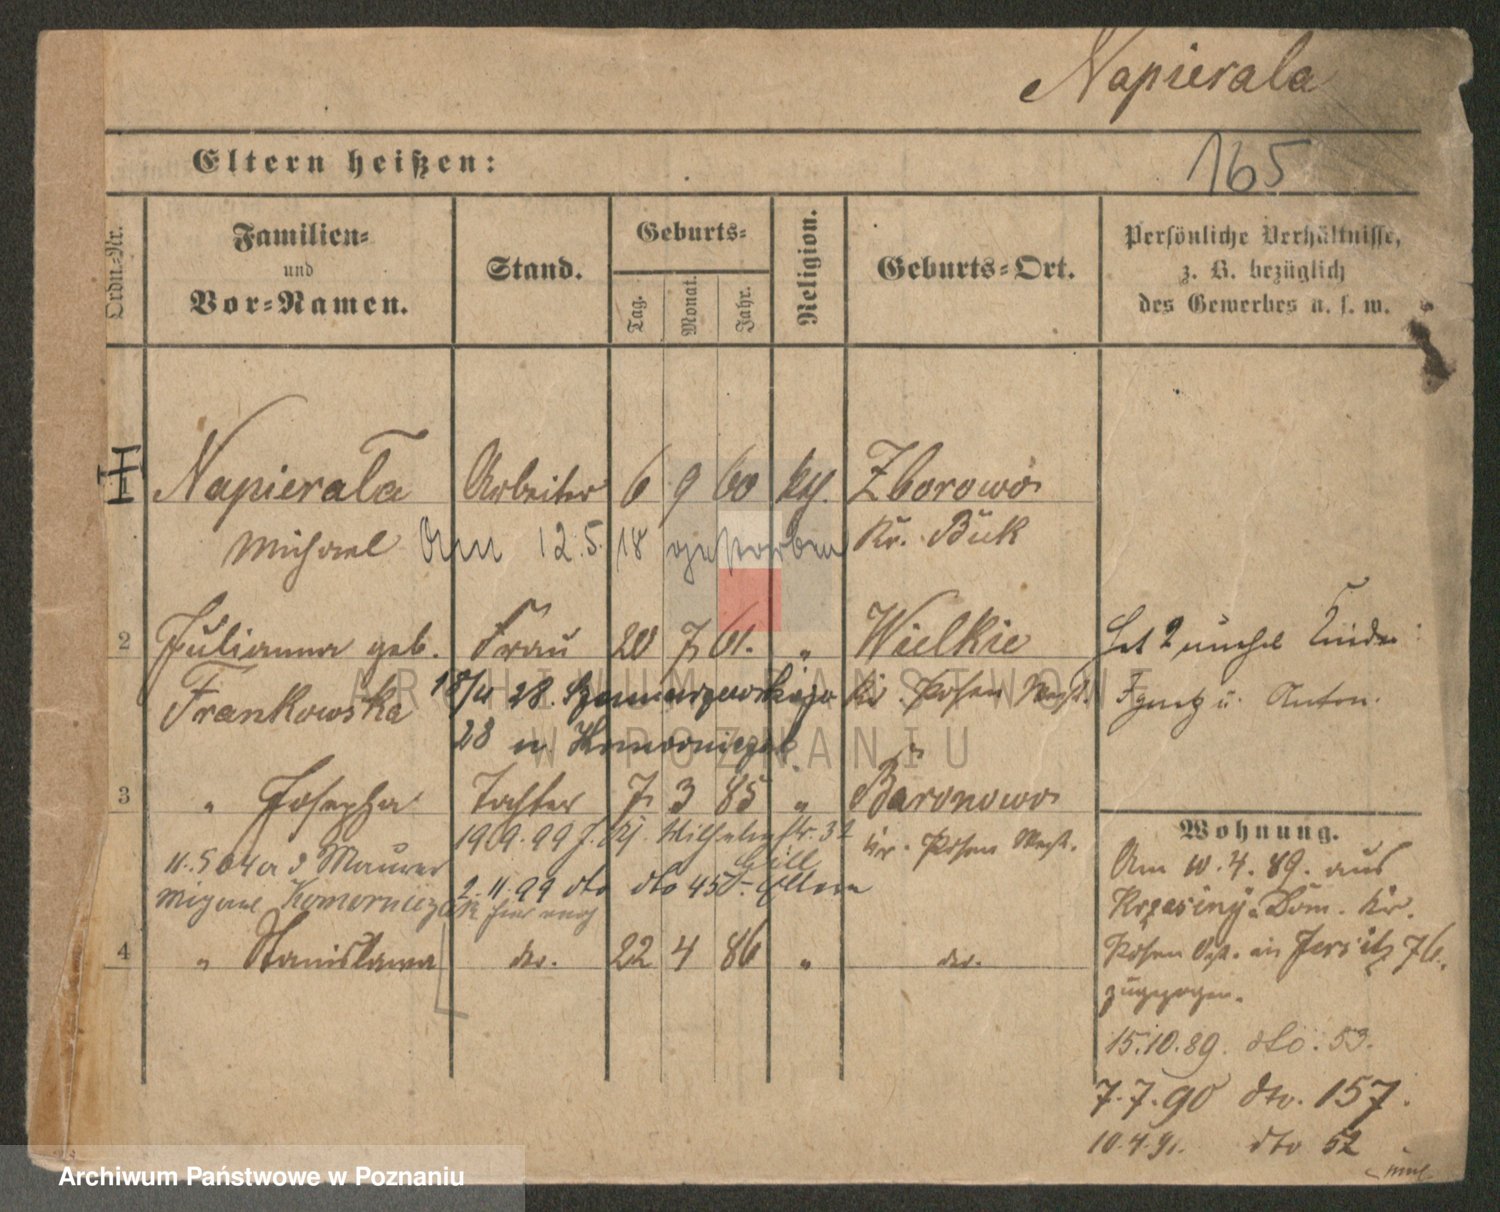 Napierala
165
Eltern heißen:
Ordn.-Nr.
Familien-
und
Vor-Namen.
Stand.
Geburts-
Tag.
Monat.
Jahr.
Religion.
Geburts-Ort.
Persönliche Verhältnisse,
z. B. bezüglich
des Gewerbes u. s. w.
1 Napierala Arbeiter 6 9 60 kth. Zborowo
Michael Am 12.5.18 gestorben Kr. Buk
2 Julianna geb. Frau 20 7 61. " Wielkie
Frankowska 28. Kr. Posen West.
28
Hat 2 Kinder:
Ignatz u. Anton.
3 " Josepha Tochter 7 3 85 " Baronowo
Kr. Posen West.
11.5.04 a d Maurer
2.11.99 dto dto 45
4 " Stanislawa do. 22 4 86 " do.
Wohnung.
Am 10.4.89. aus
Krzesiny Dom. Kr.
Posen Ost. in Jersitz 76.
zugezogen.
15.10.89. dto. 53.
7.7.90 dto. 157.
10.4.91. dto 52
ARCHIWUM PAŃSTWOWE
W POZNANIU
Archiwum Państwowe w Poznaniu